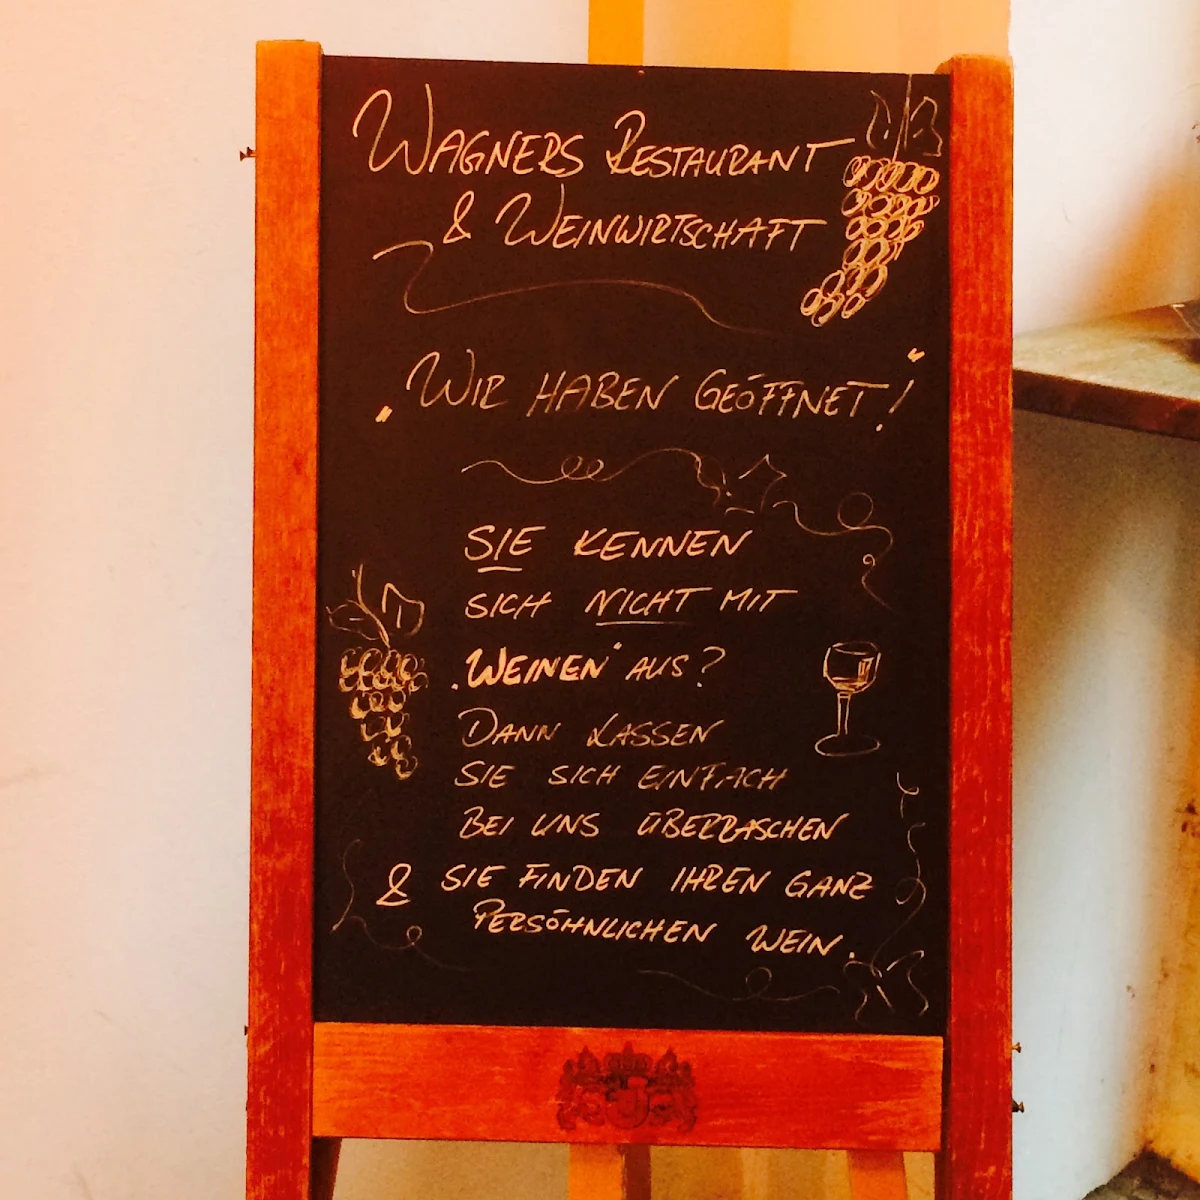 WAGNERS RESTAURANT
& WEINWIRTSCHAFT
„WIR HABEN GEÖFFNET!"
SIE KENNEN
SICH NICHT MIT
„WEINEN" AUS?
DANN LASSEN
SIE SICH EINFACH
BEI UNS ÜBERRASCHEN
& SIE FINDEN IHREN GANZ
PERSÖHNLICHEN WEIN.